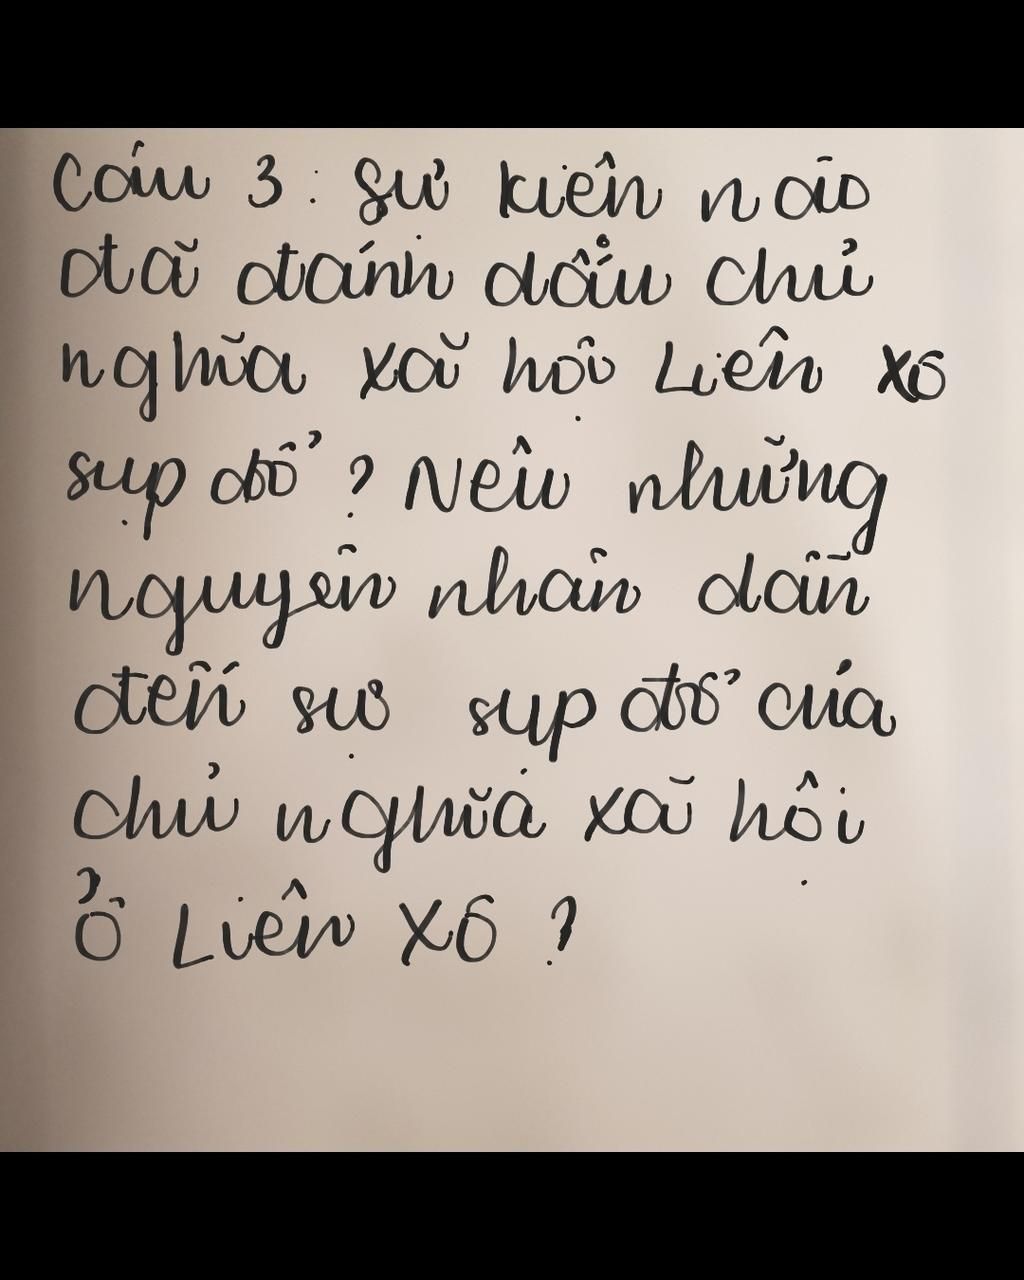 Câu 3: Sự kiện nào
đã đánh dấu chủ
nghĩa xã hội Liên Xô
sụp đổ? Nêu những
nguyên nhân dẫn
đến sự sụp đổ của
chủ nghĩa xã hội
ở Liên Xô?